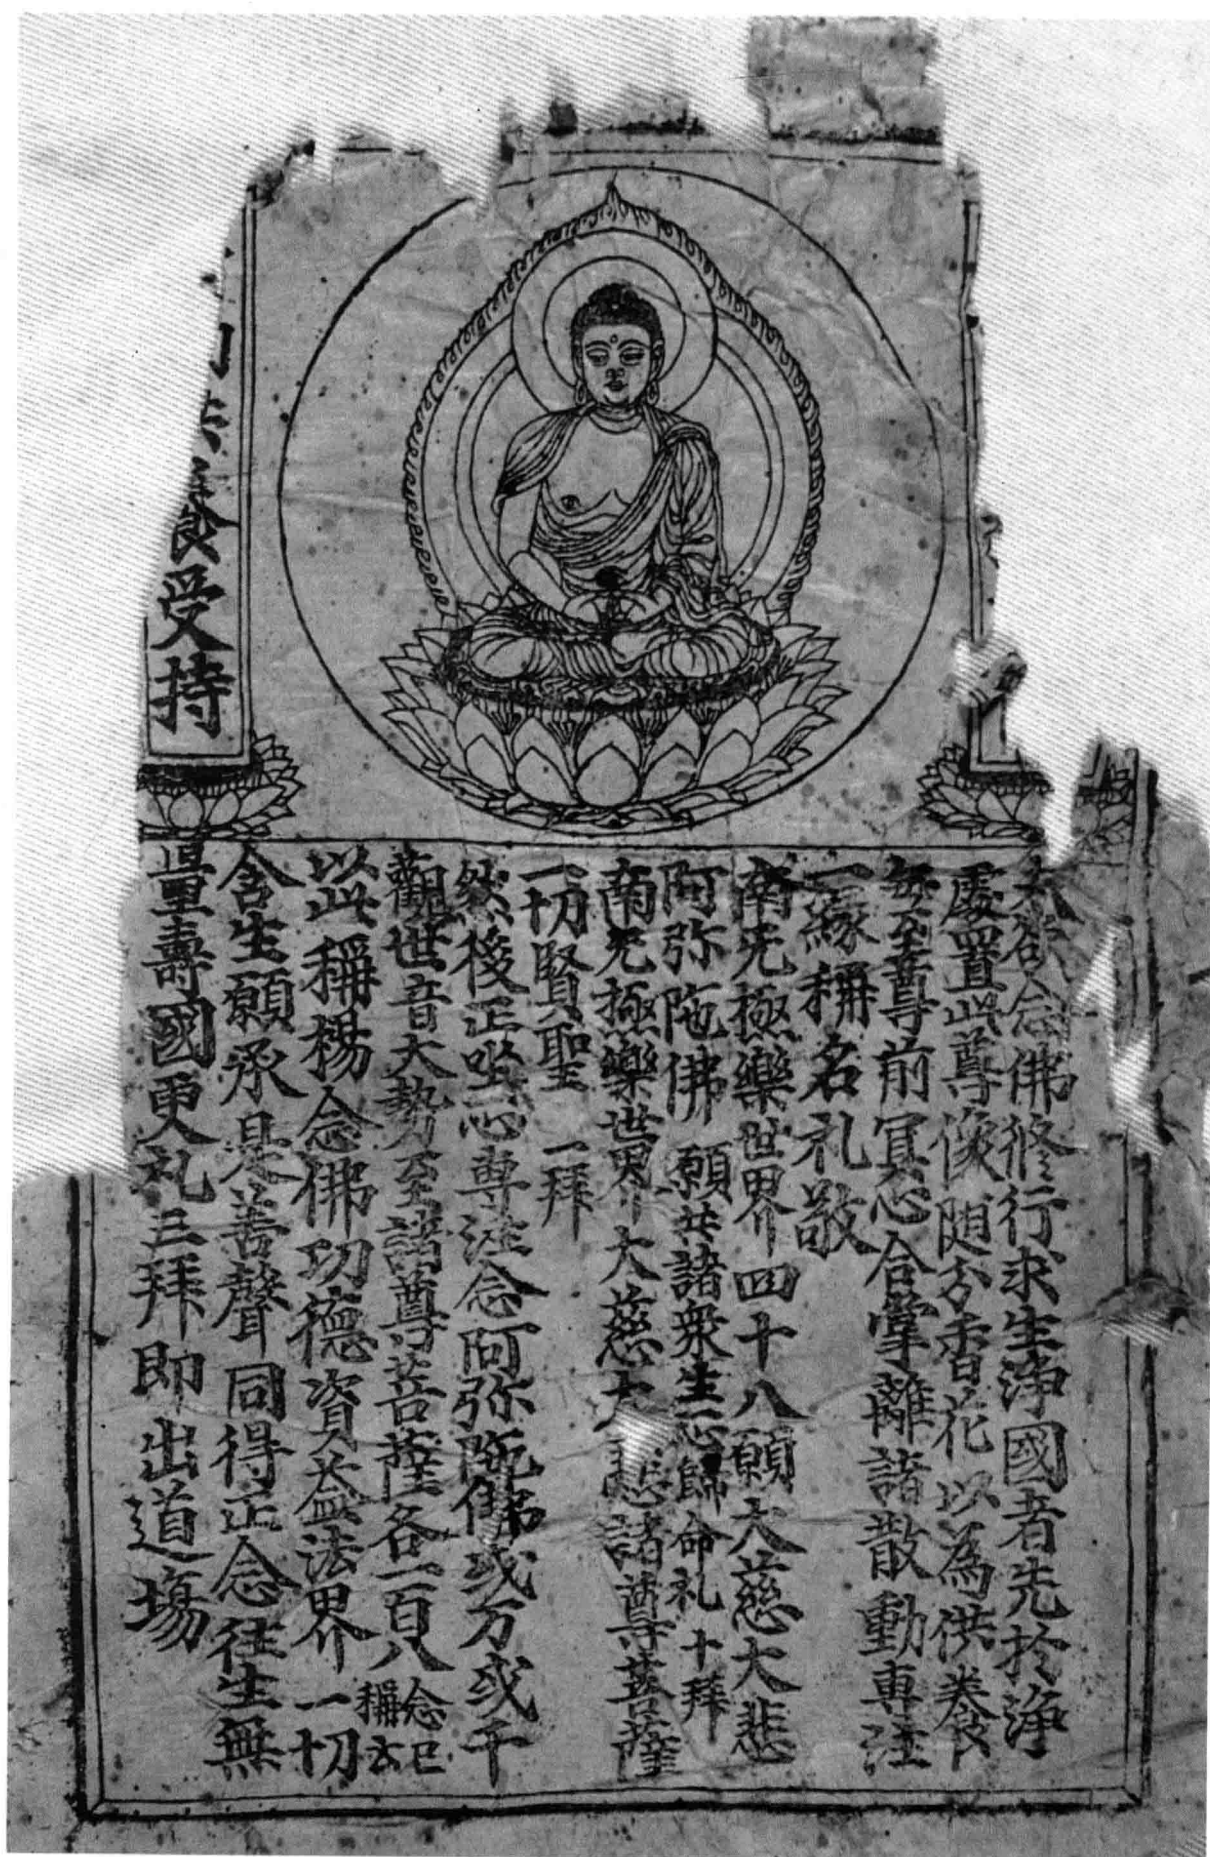 夫欲念佛修行求生淨國者先於淨
處置此尊像随分香花以為供養
每至尊前冥心合掌離諸散動專注
一緣稱名礼敬
南无極樂世界四十八願大慈大悲
阿弥陁佛 願共諸衆生志歸命礼 十拜
南无極樂世界大慈大悲諸尊菩薩
一切賢聖 一拜
然後正坐志專注念阿弥陁佛或万或千
觀世音大勢至諸尊菩薩各一百八 念已稱云
以此稱楊念佛功德資益法界一切
含生願承是善聲同得正念往生無
量壽國更礼三拜即出道場
養受持